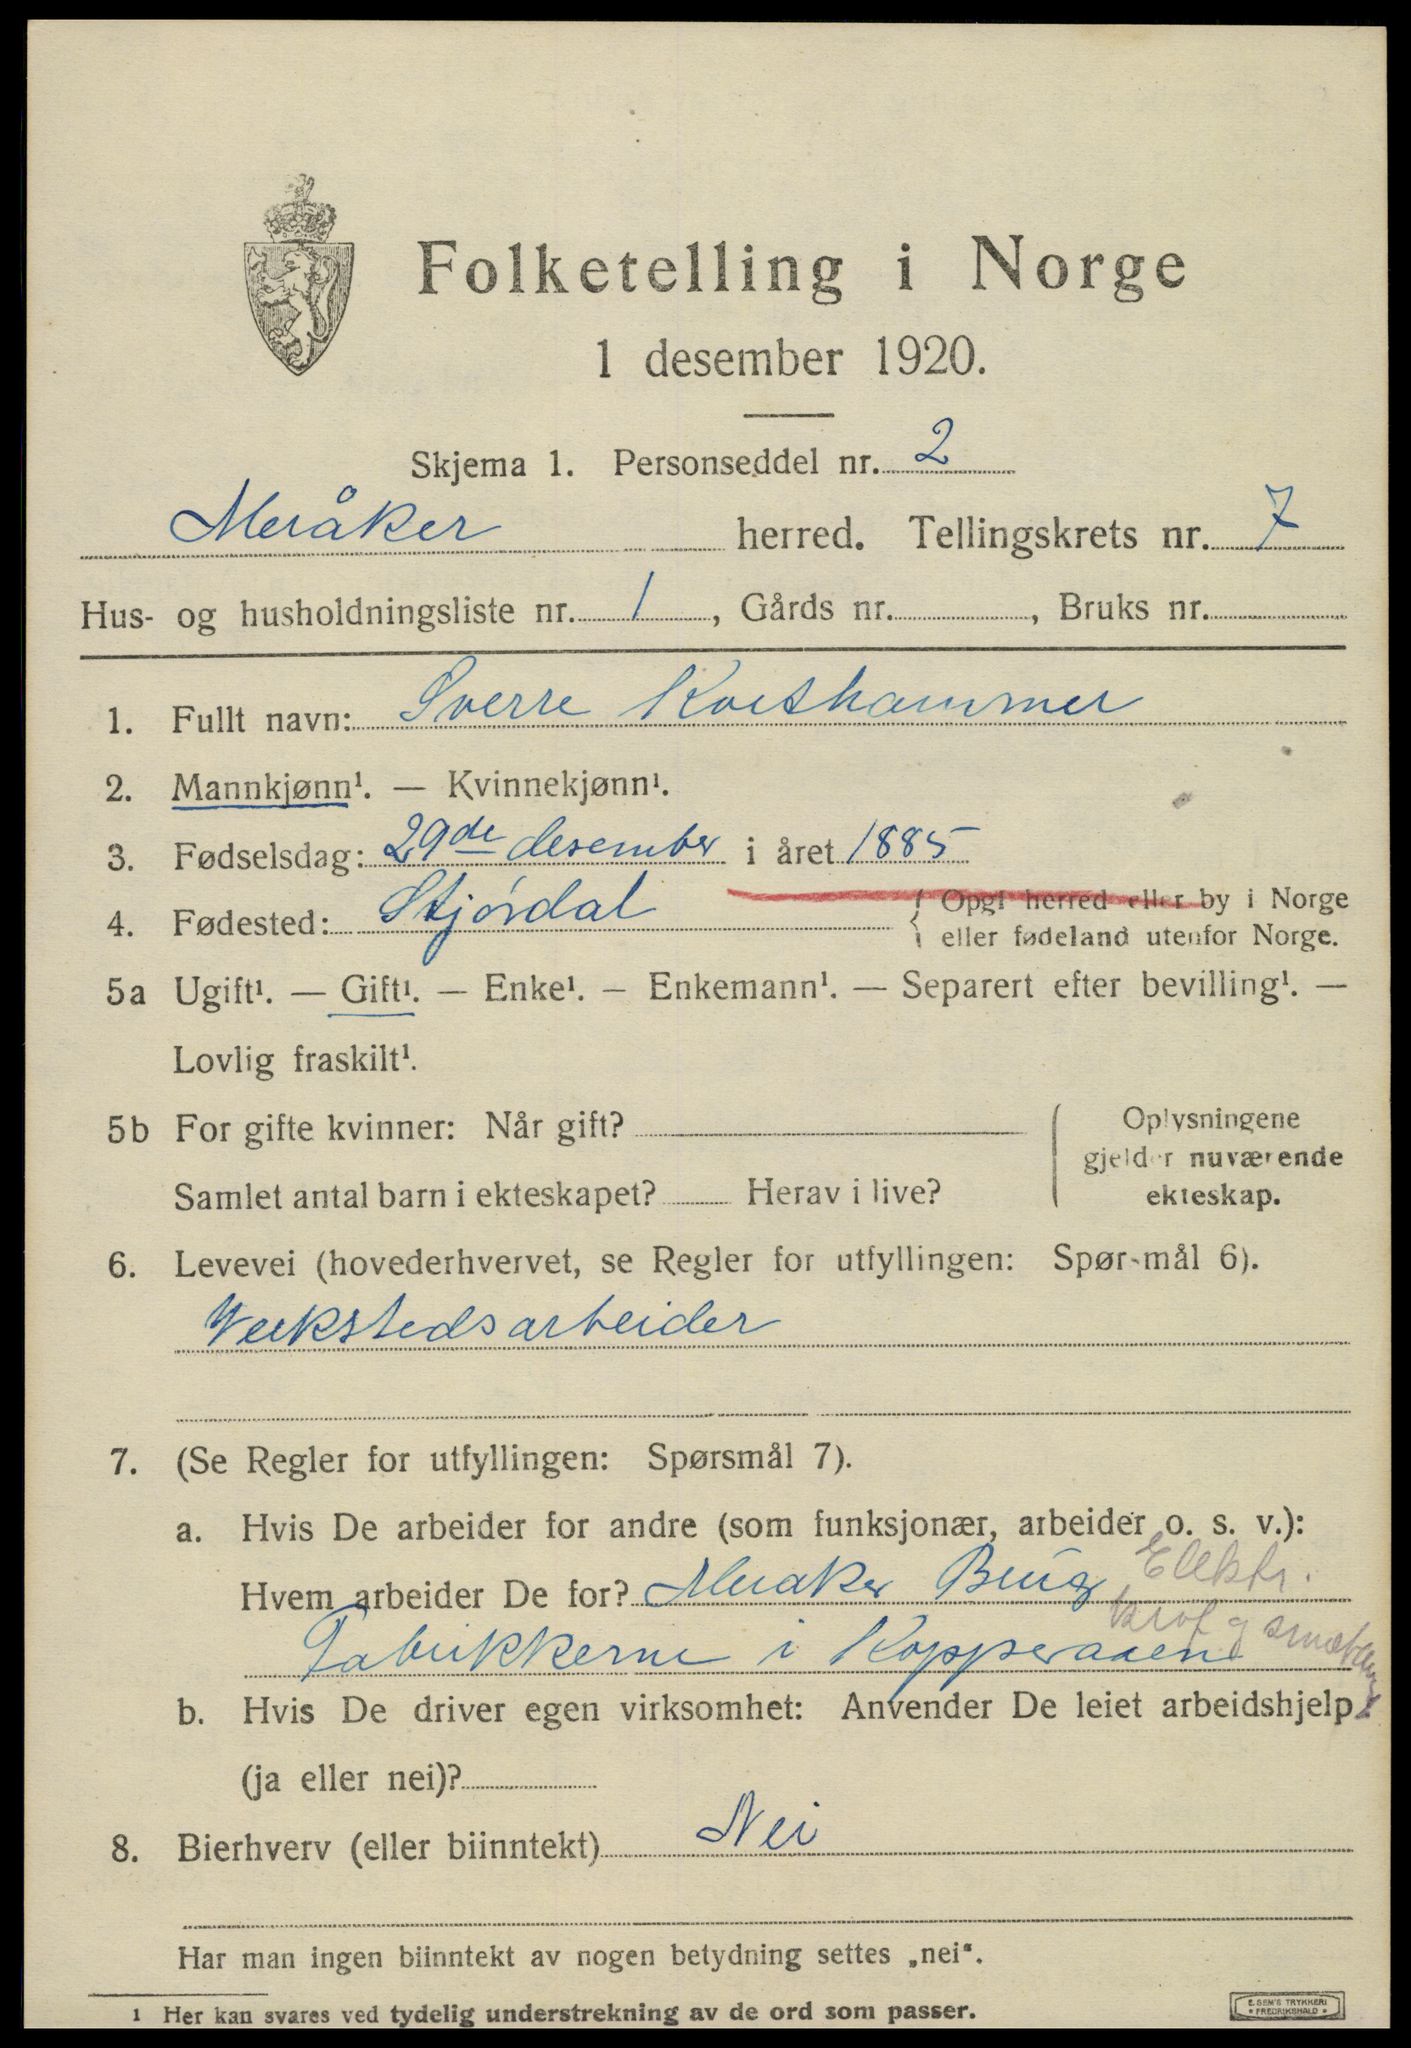 Folketelling i Norge
1 desember 1920.
Skjema 1. Personseddel nr. 2
Meråker herred. Tellingskrets nr. 7
Hus- og husholdningsliste nr. 1, Gårds nr. , Bruks nr.
1. Fullt navn: Sverre Korshammer
2. Mannkjønn¹. — Kvinnekjønn¹.
3. Fødselsdag: 29de desember i året 1885
4. Fødested: Stjørdal { Opgi herred eller by i Norge
eller fødeland utenfor Norge.
5a Ugift¹. — Gift¹. — Enke¹. — Enkemann¹. — Separert efter bevilling¹. —
Lovlig fraskilt¹.
5b For gifte kvinner: Når gift?
Samlet antal barn i ekteskapet? Herav i live?
Oplysningene
gjelder nuværende
ekteskap.
6. Levevei (hovederhvervet, se Regler for utfyllingen: Spør-mål 6).
Verkstedsarbeider
7. (Se Regler for utfyllingen: Spørsmål 7).
a. Hvis De arbeider for andre (som funksjonær, arbeider o. s. v.):
Hvem arbeider De for? Meraker Brug Elektr.
Fabrikkerne i Kopperaaen
b. Hvis De driver egen virksomhet: Anvender De leiet arbeidshjelp
(ja eller nei)?
8. Bierhverv (eller biinntekt) Nei
Har man ingen biinntekt av nogen betydning settes „nei“.
1 Her kan svares ved tydelig understrekning av de ord som passer.
E. SEM'S TRYKKERI
FREDRIKSHALD